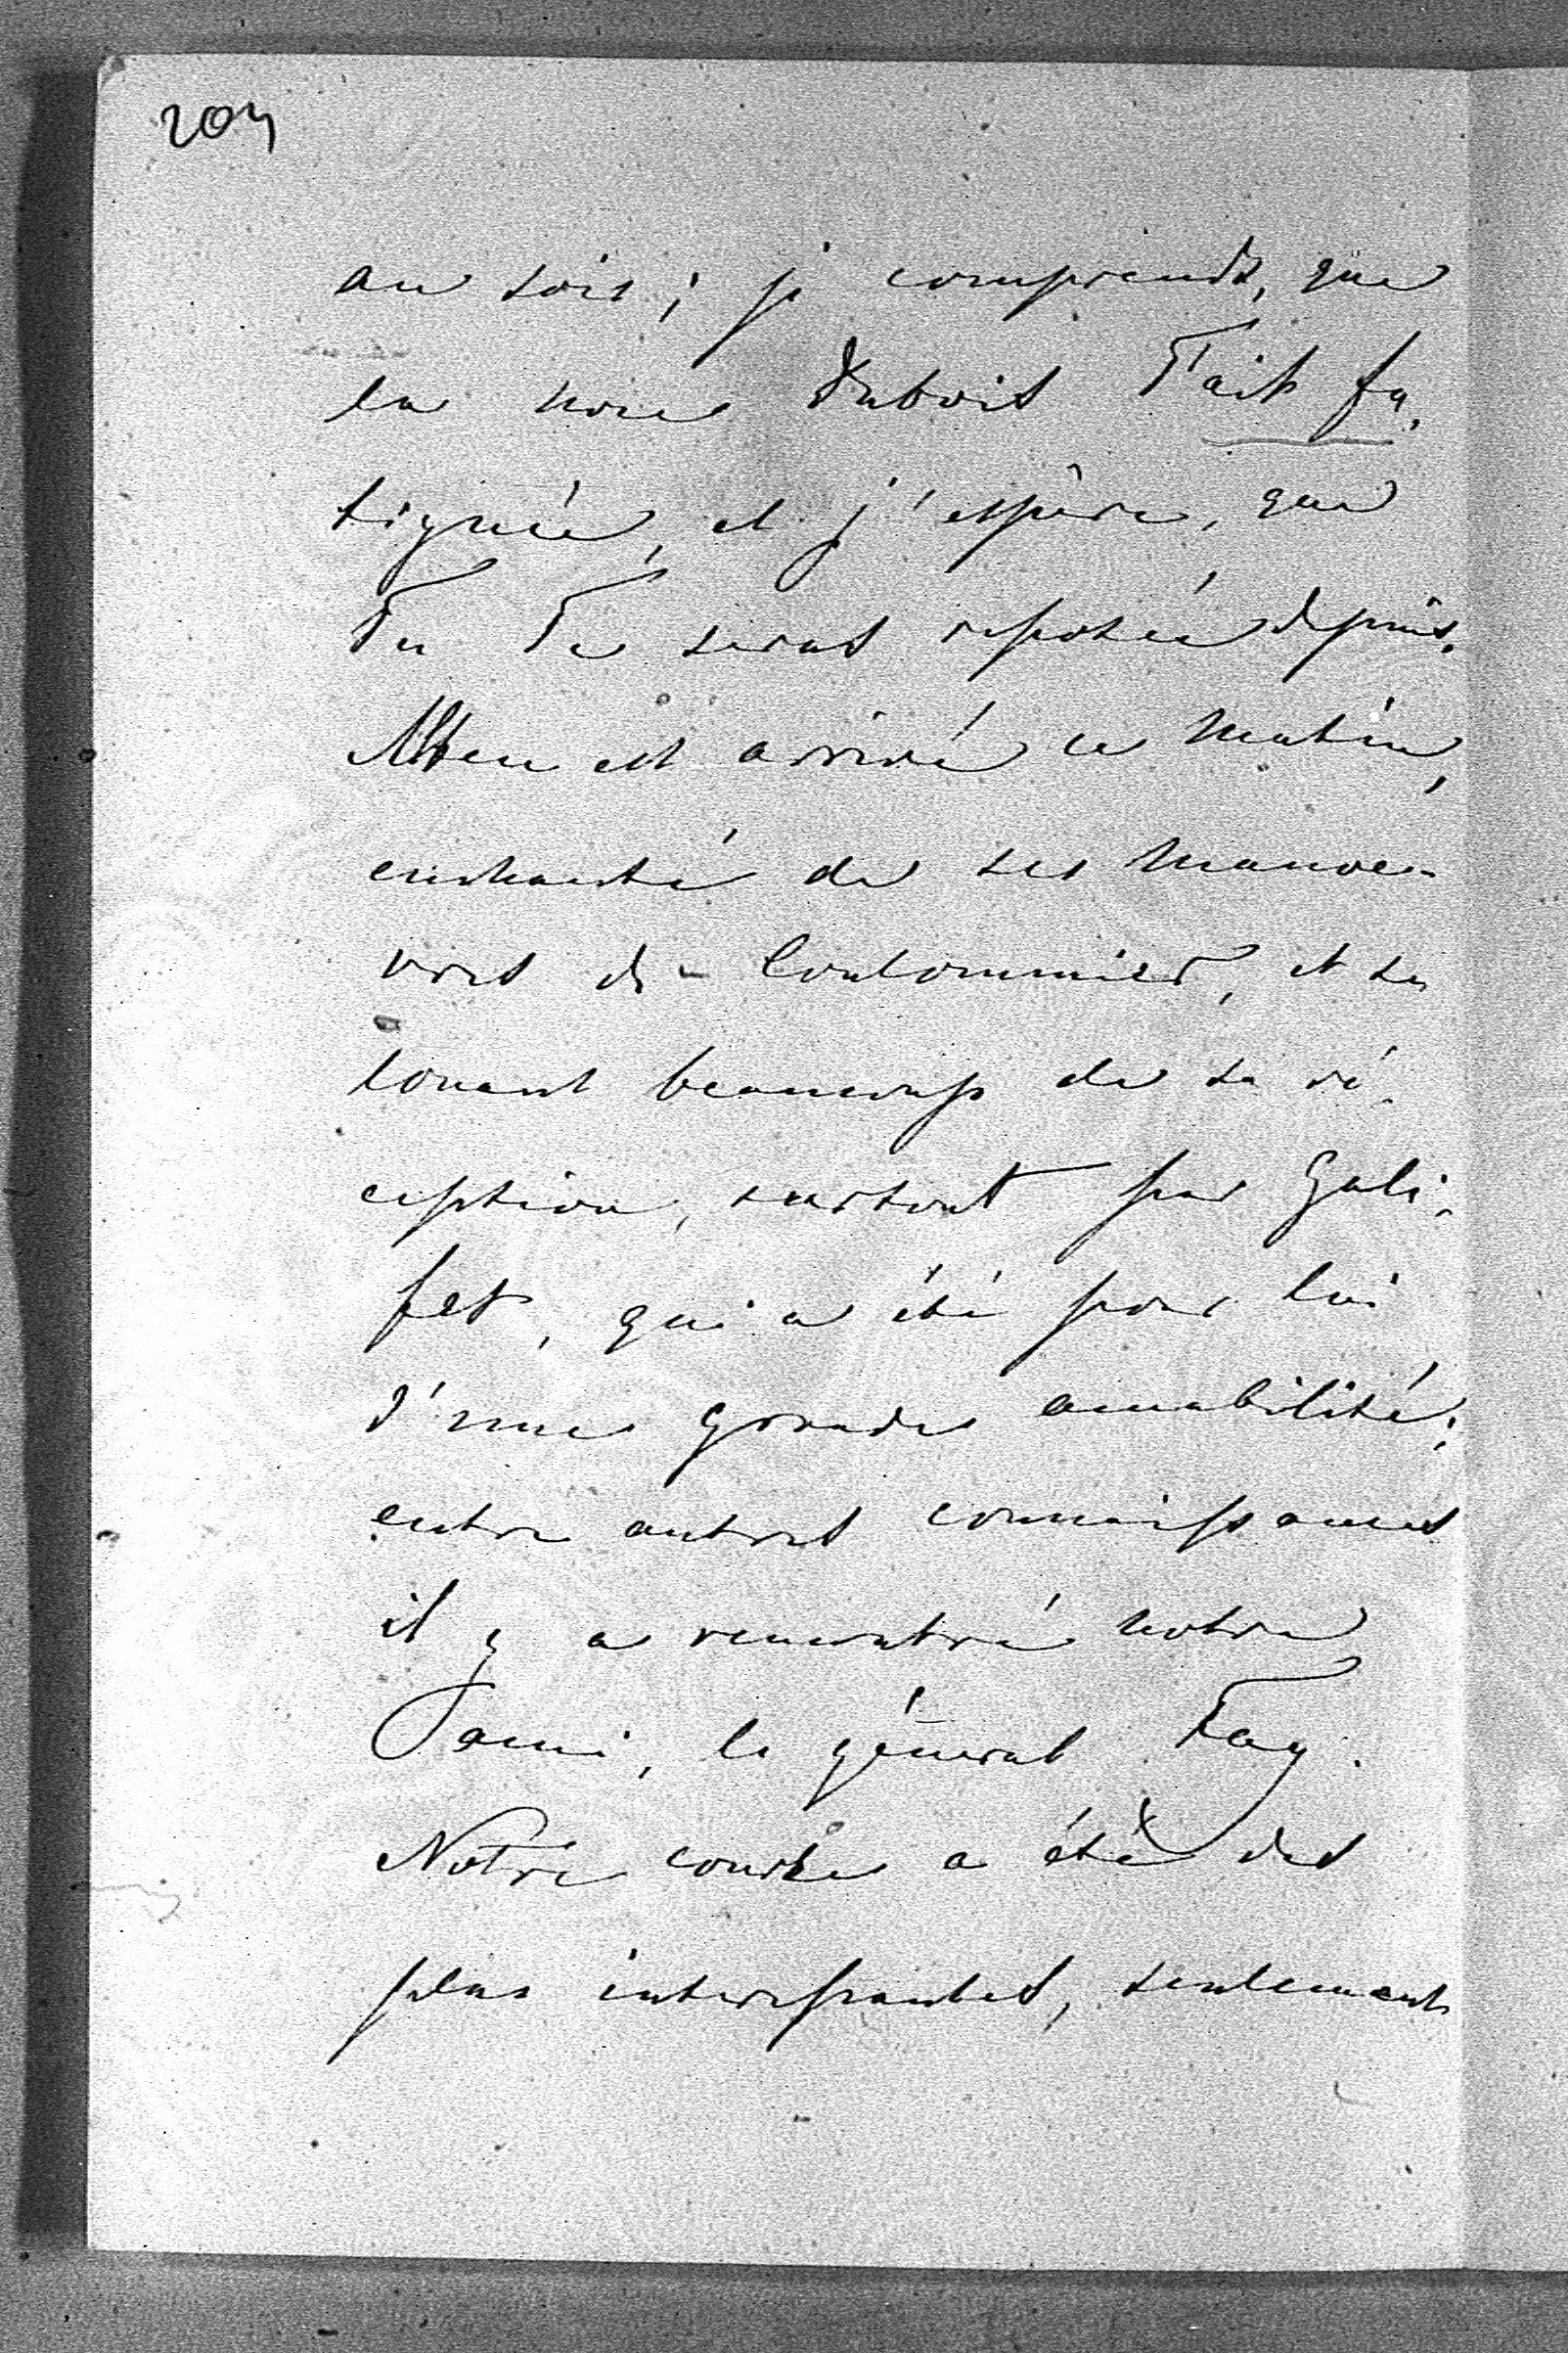 204
au soir; je comprends, que
la noce Dubois T'ait fa-
tiguée, et j'espère, que
Tu Te seras reposée depuis.
est arrivé ce matin,
enchanté de ses manoe-
vres de Coulommiers, et se
louant beaucoup de sa ré-
ception, surtout par Gali-
fet, qui a été pour lui
d'une grande amabilité;
entre autres connaissances
il y a rencontré notre
ami, le général Fay.
Notre course a été des
plus interessantes, seulement